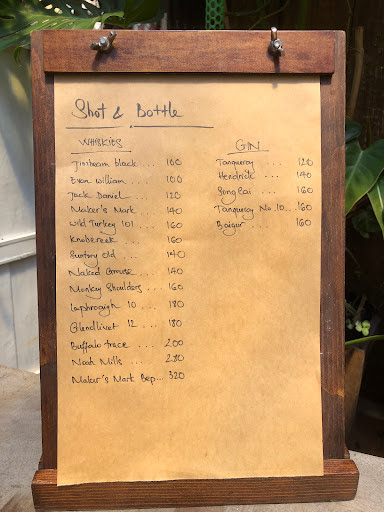 Shot & Bottle
WHISKIES
Jimbeam black ... 160
Evan william .... 100
Jack Daniel ... 120
Maker's Mark ... 140
Wild Turkey 101 ... 160
Knobcreek ... 160
Suntory Old ... 140
Naked Grouse ... 140
Monkey Shoulders ... 160
Laphroaigh 10 ... 180
Glendlivet 12 ... 180
Buffalo trace .... 200
Noah Mills .... 280
Makar's Mark Bep... 320
GIN
Tanqueray ... 120
Hendrick ... 140
Song Cai ... 160
Tanqueray No.10... 160
Baigur .. 160